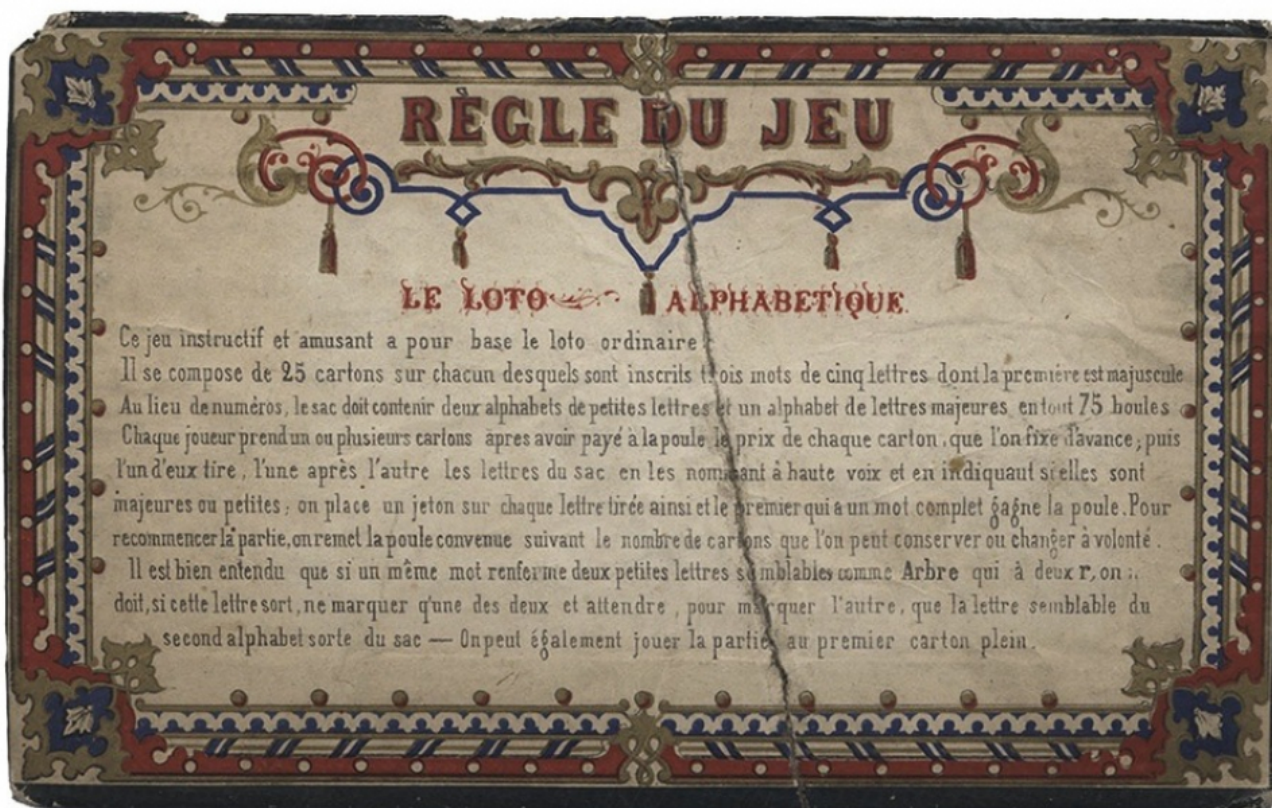 RÈGLE DU JEU
LE LOTO ALPHABETIQUE
Ce jeu instructif et amusant a pour base le loto ordinaire :
Il se compose de 25 cartons sur chacun desquels sont inscrits trois mots de cinq lettres dont la première est majuscule
Au lieu de numéros, le sac doit contenir deux alphabets de petites lettres et un alphabet de lettres majeures, en tout 75 boules
Chaque joueur prend un ou plusieurs cartons àpres avoir payé à la poule le prix de chaque carton, que l'on fixe d'avance; puis
l'un d'eux tire, l'une après l'autre les lettres du sac en les nommant à haute voix et en indiquant si elles sont
majeures ou petites; on place un jeton sur chaque lettre tirée ainsi et le premier qui a un mot complet gagne la poule. Pour
recommencer la partie, on remet la poule convenue suivant le nombre de cartons que l'on peut conserver ou changer à volonté.
Il est bien entendu que si un même mot renferme deux petites lettres semblables comme Arbre qui à deux r, on
doit, si cette lettre sort, ne marquer q'une des deux et attendre, pour marquer l'autre, que la lettre semblable du
second alphabet sorte du sac — On peut également jouer la partie au premier carton plein.